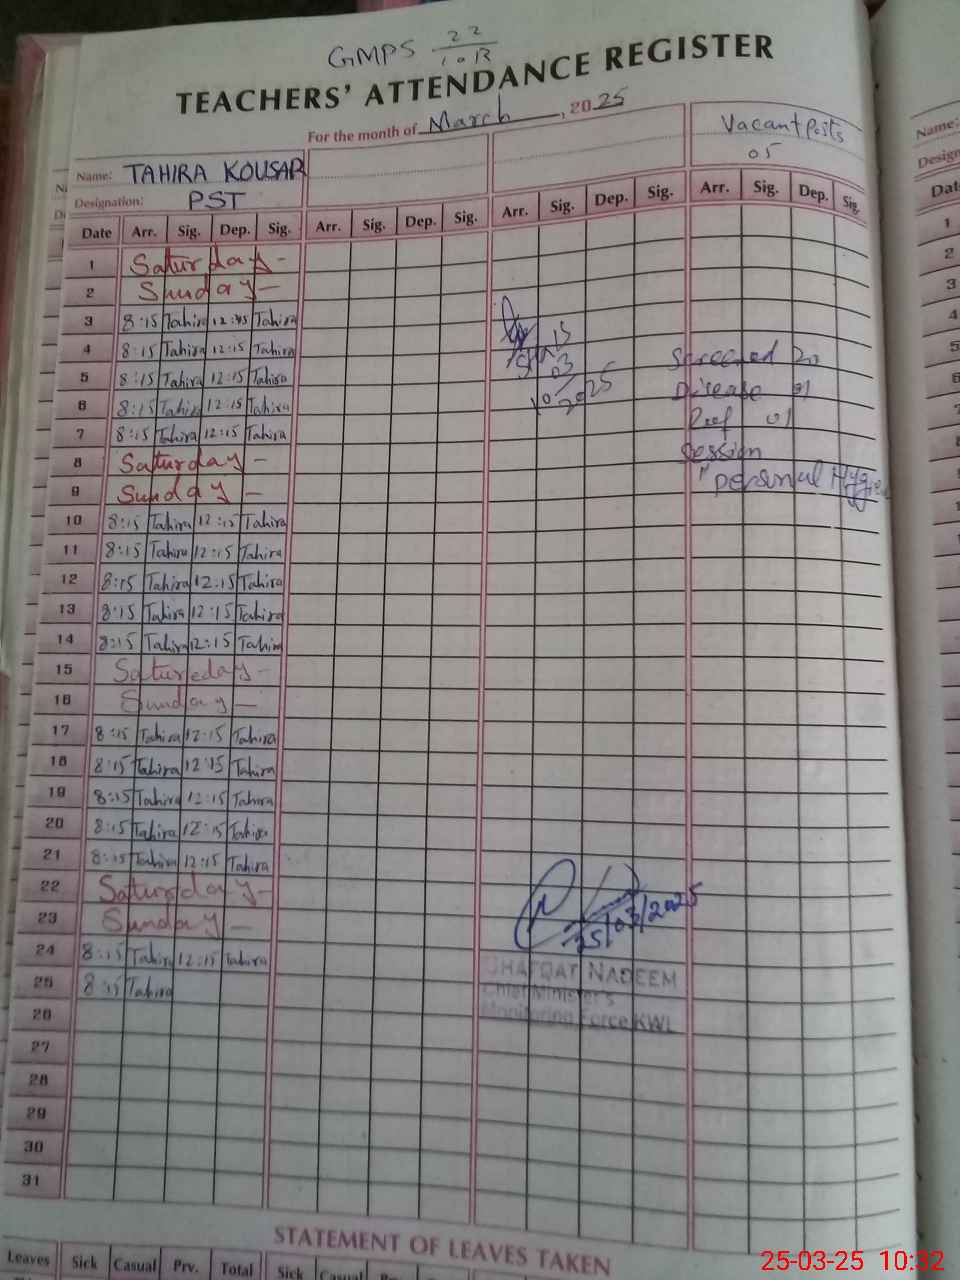 GMPS 22/10R
TEACHERS' ATTENDANCE REGISTER
For the month of March, 2025
Name: TAHIRA KOUSAR
Designation: PST
Vacant Posts
05
Date Arr. Sig. Dep. Sig. Arr. Sig. Dep. Sig. Arr. Sig. Dep. Sig. Arr. Sig. Dep. Sig.
1 Saturday -
2 Sunday -
3 8:15 Tahira 12:45 Tahira
4 8:15 Tahira 12:15 Tahira
5 8:15 Tahira 12:15 Tahira
6 8:15 Tahira 12:15 Tahira
7 8:15 Tahira 12:15 Tahira
8 Saturday -
9 Sunday -
10 8:15 Tahira 12:15 Tahira
11 8:15 Tahira 12:15 Tahira
12 8:15 Tahira 12:15 Tahira
13 8:15 Tahira 12:15 Tahira
14 8:15 Tahira 12:15 Tahira
15 Satureday -
16 Sunday -
17 8:15 Tahira 12:15 Tahira
18 8:15 Tahira 12:15 Tahira
19 8:15 Tahira 12:15 Tahira
20 8:15 Tahira 12:15 Tahira
21 8:15 Tahira 12:15 Tahira
22 Saturday -
23 Sunday -
24 8:15 Tahira 12:15 Tahira
25 8:15 Tahira
26
27
28
29
30
31
10/03/2025
Screened 20
Disease 01
Ref 01
Session
"personal Hygiene
25/03/2025
SHAFQAT NADEEM
Chief Minister's
Monitoring Force KWL
STATEMENT OF LEAVES TAKEN
Leaves Sick Casual Prv. Total Sick Casual
Name:
1
2
3
4
5
25-03-25 10:32